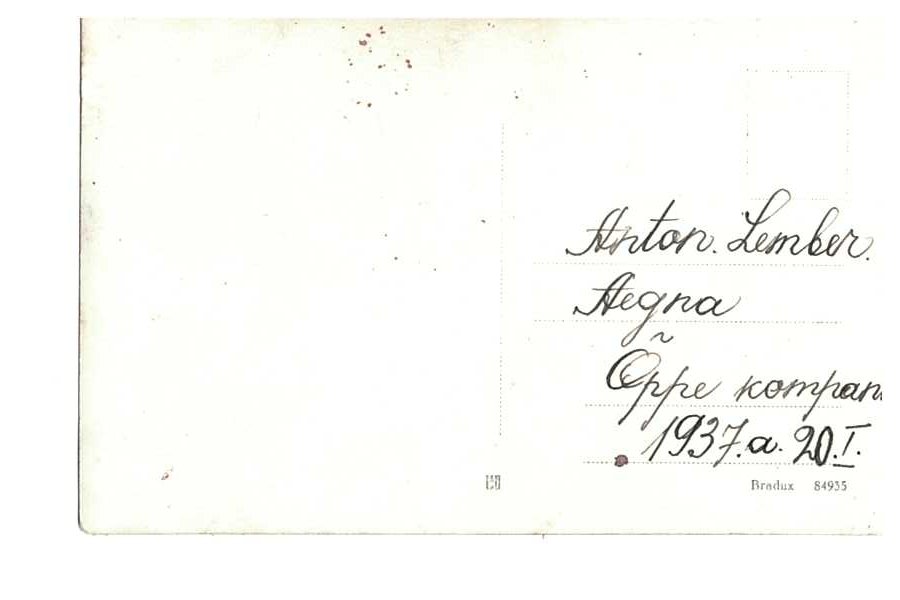 Anton. Lember.
Aegna
Õppe kompan
1937.a. 20.I.
Bradux 84935